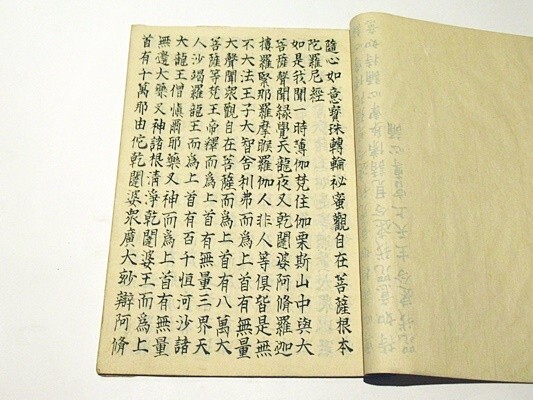 隨心如意寳珠轉輪祕蜜觀自在菩薩根本
陀羅尼經
如是我聞一時薄伽梵住伽栗斯山中與大
菩薩聲聞緣覺天龍夜叉乾闥婆阿脩羅迦
摟羅緊那羅摩睺羅伽人非人等俱皆是無
不大法王子大智舍利弗而爲上首有無量
大聲聞衆觀自在菩薩而爲上首有八萬大
菩薩等梵王帝釋而爲上首有無量三界天
人沙竭羅龍王而爲上首有百千恒河沙諸
大龍王僧慎爾耶藥叉神而爲上首有無量
無邊大藥叉神諸根清淨乾闥婆王而爲上
首有十萬那由佗乾闥婆衆廣大玅辯阿脩